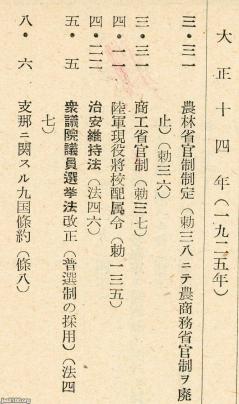 大正十四年（一九二五年）
三・三一 農林省官制制定（勅三八ニテ農商務省官制ヲ廃
止）（勅三六）
三・三一 商工省官制（勅三七）
四・一一 陸軍現役將校配属令（勅一三五）
四・二二 治安維持法（法四六）
五・五 衆議院議員選挙法改正（普選制の採用）（法四
七）
八・六 支那ニ関スル九国條約（條八）
jaa2100.org